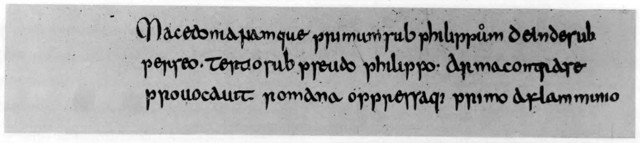 Macedonia namque primum sub philippům deinde sub
perseo. Tertio sub pseudo philippo. Arma contra se
provocavit romana oppressaq; primo a flamminio